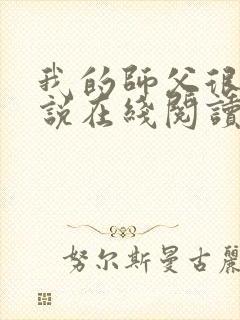 我的師父很
說在綫閱讀
努尔斯曼古麗